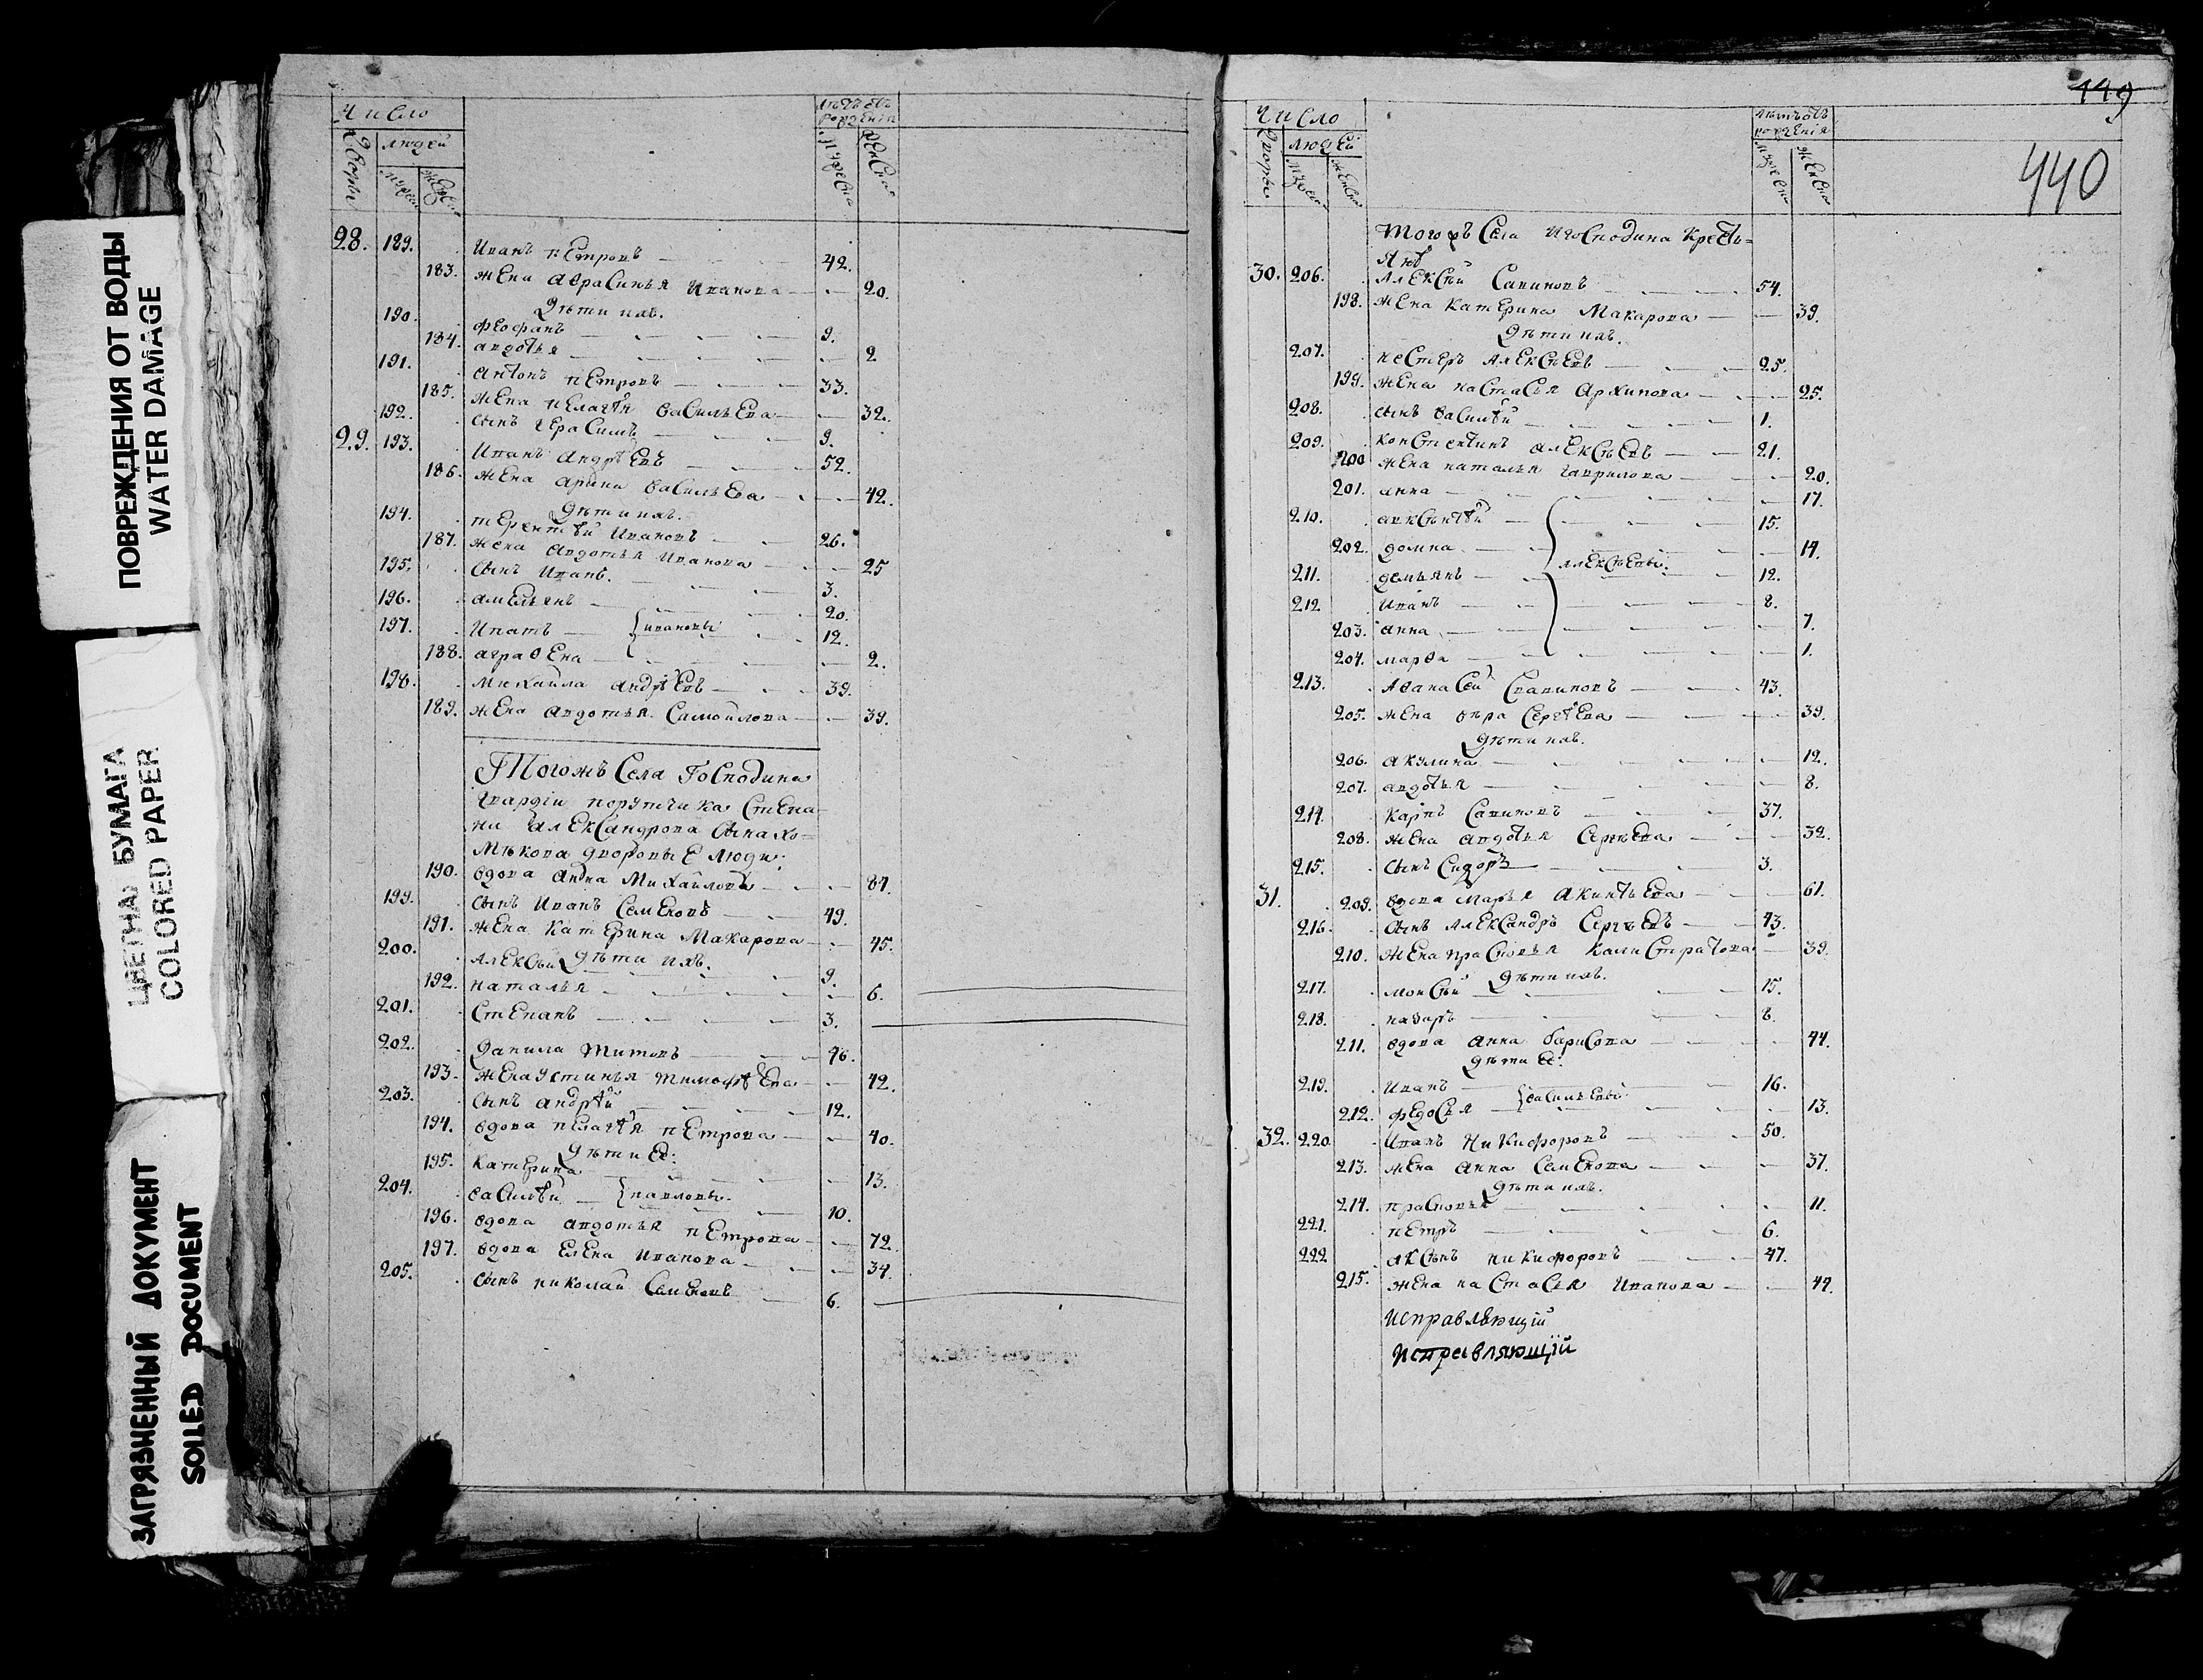 ПОВРЕЖДЕНИЯ ОТ ВОДЫ
WATER DAMAGE
ЦВЕТНАЯ БУМАГА
COLORED PAPER
ЗАГРЯЗНЕННЫЙ ДОКУМЕНТ
SOILED DOCUMENT
Число
людей
28. 189. Иванъ Петровъ 42.
183. жена Афросинья Иванова 20.
Дѣти ихъ.
190. Феофанъ 9.
184. авдотья 2.
191. Антонъ Петровъ 33.
185. жена Пелагѣя васильева 32.
192. сынъ герасимъ 9.
29. 193. Иванъ Андрѣевъ 52.
186. жена Арина васильева 42.
Дѣти ихъ.
194. терентѣй Ивановъ 26.
187. жена Авдотья Иванова 25
195. сынъ Иванъ. 3.
196. амельянъ 20.
197. Ипатъ ивановы 12.
188. аграфена 2.
198. михайла андрѣевъ 39.
189. жена авдотья Самойлова 39.
Тогожъ Села Господина
гвардіи порутчика Степа
на александрова сына хо=
мякова дворовые люди:
190. вдова Анна Михайлова 87.
199. сынъ Иванъ Семеновъ 49.
191. жена Катерина Макарова 45.
Дѣти ихъ.
200. Алексѣй 9.
192. Наталья 6.
201. Степанъ 3.
202. Данила Титовъ 46.
193. жена устинья тимофѣева 42.
203. сынъ андрѣй 12.
194. вдова пелагѣя петрова 40.
Дѣти Ее:
195. Катерина 13.
204. василѣй павловы. 10.
196. вдова авдотья петрова 72.
197. вдова Елена Иванова 34.
205. сынъ николай Семеновъ 6.
119
440
Число
людей
Тогожъ Села Игосподина кресть=
янѣ
30. 206. Алексѣй Савиновъ 54.
198. жена катерина Макарова 39.
Дѣти ихъ.
207. Нестеръ Алексѣевъ 25.
199. жена настасья Архипова 25.
208. сынъ василѣй 1.
209. констентинъ алексѣевъ 21.
200 жена наталья гаврилова 20.
201. анна 17.
210. авксентѣй 15.
202. домна 14.
алексѣевы.
211. демьянъ 12.
212 Иванъ 8.
203. анна 7.
204. марфа 1.
213. Афанасей Савиновъ 43.
205. жена вѣра Сергѣева 39.
Дѣти ихъ.
206. акулина 12.
207. авдотья 8.
214. Карпъ Савиновъ 37.
208. жена авдотья Сергѣева 32.
215. сынъ Сидоръ 3.
31. 209. вдова марья Акинтьева 61.
216. сынъ Александръ Сергѣевъ 43.
210. жена прасковья калистратова 39.
Дѣти ихъ.
217. моисѣй 15.
218. назаръ 8.
211. вдова анна барисова 44.
Дѣти Ее:
219. Иванъ 16.
васильевы
212. федосья 13.
32. 220. Иванъ Никифоровъ 50.
213. жена анна Семенова 37.
Дѣти ихъ.
214. прасковья 11.
221. петръ 6.
222 аксенъ никифоровъ 47.
215. жена настасья Иванова 42.
Исправляющій
исправляющій